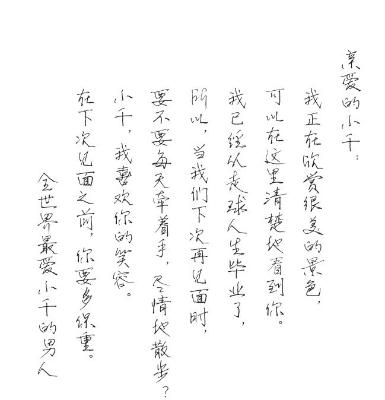 亲爱的小千:
我正在欣赏很美的景色,
可以在这里清楚地看到你。
我已经从走球人生毕业了,
所以,当我们下次再见面时,
要不要每天牵着手,尽情地散步?
小千,我喜欢你的笑容。
在下次见面之前,你要多保重。
全世界最爱小千的男人